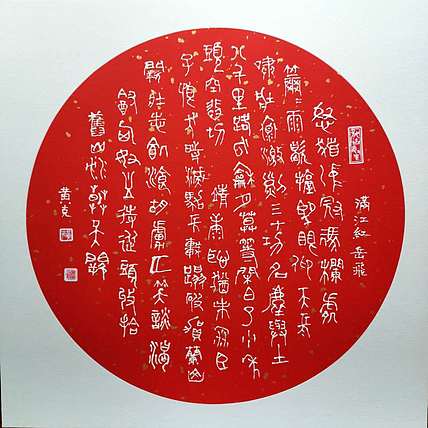 滿江紅 岳飛
怒髮衝冠憑欄處
瀟瀟雨歇擡望眼仰天長
嘯壯懷激烈三十功名塵與土
八千里路雲和月莫等閒白了少年
頭空悲切 靖康恥猶未雪臣
子恨何時滅駕長車踏破賀蘭山
闕壯志飢餐胡虜肉笑談渴
飲匈奴血待從頭收拾
舊山河朝天闕